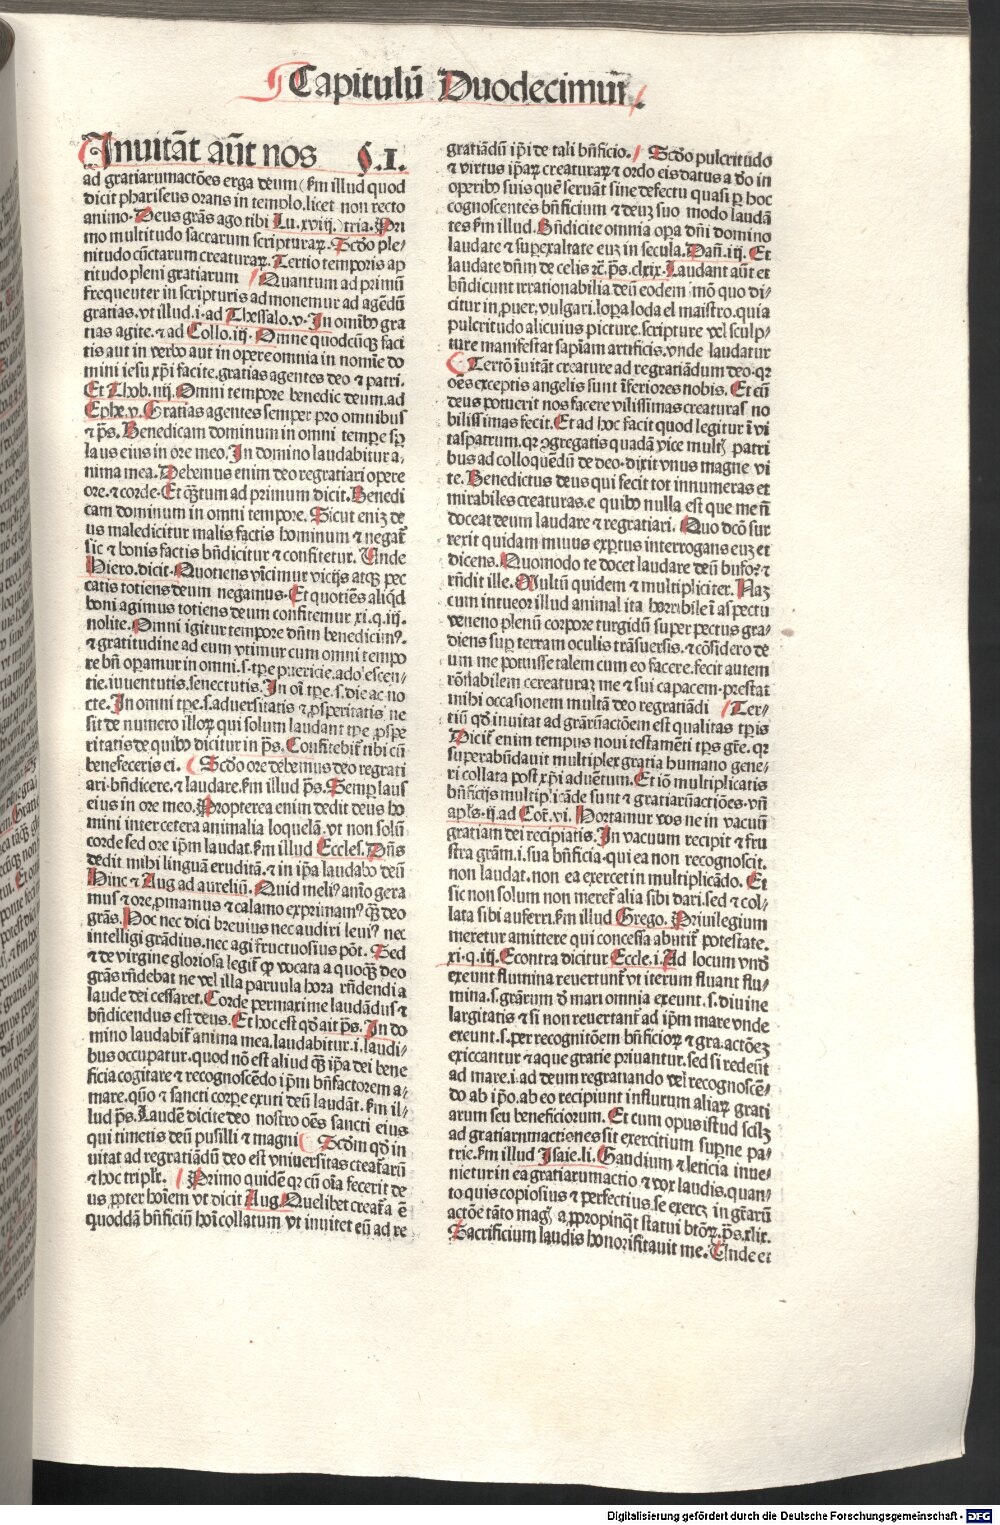 Capitulū Duodecimū.
Inuitāt aūt nos §.I.
ad gratiarumactōes erga deum (ẜm illud quod
dicit phariseus orans in templo. licet non recto
animo. Deus grās ago tibi Lu. xviij.) tria. Pri
mo multitudo sacrarum scripturaꝝ. Scd̄o ple⸗
nitudo cūctarum creaturaꝝ. Tertio temporis ap
titudo pleni gratiarum Quantum ad primū
frequenter in scripturis admonemur ad agēdū
gratias. vt illud .i. ad Thessalo. v. In omībꝰ gra
tias agite. ⁊ ad Collo. iij. Omne quodcūqꝫ faci
tis aut in verbo aut in opere omnia in nomīe do
mini iesu xp̄i facite. gratias agentes deo ⁊ patri.
Et Thob. iiij. Omni tempore benedic deum. ad
Ephe. v. Gratias agentes semper pro omnibus
⁊ ps̄. Benedicam dominum in omni tempe sꝑ
laus eius in ore meo. In domino laudabitur a⸗
nima mea. Debemus enim deo regratiari opere
ore. ⁊ corde. Et qꝫtum ad primum dicit. Benedi
cam dominum in omni tempore. Sicut enīꝫ de
us maledicitur malis factis hominum ⁊ negat᷑
sic ⁊ bonis factis bn̄dicitur ⁊ confitetur. Unde
Hiero. dicit. Quotiens vīcimur vicijs atqꝫ pec
catis totiens deum negamus. Et quotiēs aliqd̄
boni agimus totiens deum confitemur xi. q. iij.
nolite. Omni igitur tempore dn̄m benedicimꝰ.
⁊ gratitudine ad eum vtimur cum omni tempo
re bn̄ oꝑamur in omni. s. tꝑe puericie. adolescen⸗
tie. iuuentutis. senectutis. In oī tꝑe. s. die ac no
cte. In omni tꝑe. s. aduersitatis ⁊ ꝓsperitatis ne
sit de numero illoꝝ qui solum laudant tꝑe ꝓspe
ritatis de quibꝰ dicitur in ps̄. Confitebit᷑ tibi cū
benefeceris ei. Scd̄o ore debemus deo regrati
ari. bn̄dicere. ⁊ laudare. ẜm illud ps̄. Semꝑ laus
eius in ore meo. Propterea enim dedit deus ho
mini inter cetera animalia loquelā. vt non solū
corde sed ore ip̄m laudat. ẜm illud Eccles. Dn̄s
dedit mihi linguā eruditā. ⁊ in ip̄a laudabo deū
Hinc ⁊ Aug ad aureliū. Quid meliꝰ aīo gera
mus ⁊ ore ꝓmamus ⁊ calamo exprimamꝰ qꝫ deo
grās. Hoc nec dici breuius nec audiri leuiꝰ nec
intelligi grādius. nec agi fructuosius pōt. Sed
⁊ de virgine gloriosa legit᷑ ꝙ vocata a quoqꝫ deo
grās rn̄debat ne vel illa paruula hora rn̄dendi a
laude dei cessaret. Corde per maxime laudādus ⁊
bn̄dicendus est deus. Et hoc est qd̄ ait ps̄. In do
mino laudabit᷑ anima mea. laudabitur .i. laudi⸗
bus occupatur. quod nō est aliud qꝫ ip̄a dei bene
ficia cogitare ⁊ recognoscēdo ip̄m bn̄factorem a⸗
mare. quo ⁊ sancti corpe exuti deū laudāt. ẜm il⸗
lud ps̄. Laudē dicite deo nostro oēs sancti eius
qui timetis deū pusilli ⁊ magni Scd̄m qd̄ in
uitat ad regratiādū deo est vniuersitas creat᷑arū
⁊ hoc triplr̄. Primo quidē qꝛ cū oīa fecerit de
us ꝓpter hoīem vt dicit Aug. Quelibet creat᷑a ē
quoddā bn̄ficiū hoī collatum vt inuitet eū ad re
gratiādū ip̄i de tali bn̄ficio. Scd̄o pulcritudo
⁊ virtus ip̄aꝝ creaturaꝝ ⁊ ordo eis datus a do in
operibꝰ suis quē seruāt sine defectu quasi ꝑ hoc
cognoscentes bn̄ficium ⁊ deuꝫ suo modo laudā
tes ẜm illud. Bn̄dicite omnia oꝑa dn̄i domino
laudate ⁊ suꝑexaltate euꝫ in secula. Dan̄. iij. Et
laudate dn̄m de celis ⁊c̄. ps̄. clxix. Laudant aūt et
bn̄dicunt irrationabilia deū eodem mō quo di⸗
citur in ꝓuer. vulgari. lopa loda el maistro. quia
pulcritudo alicuius picture. scripture vel sculp⸗
ture manifestat sapīam artificis. vnde laudatur
Tertō īuitāt creature ad regratiādum deo. qꝛ
oēs exceptis angelis sunt īferiores nobis. Et cū
deus potuerit nos facere vilissimas creaturas no
bilissimas fecit. Et ad hoc facit quod legitur ī vi
tas patrum. qꝛ ꝯgregatis quadā vice multꝭ patri
bus ad colloquēdū de deo. dixit vnus magne vi
te. Benedictus deus qui fecit tot innumeras et
mirabiles creaturas. e quibꝰ nulla est que me nō
doceat deum laudare ⁊ regratiari. Quo dcō sur
rexit quidam minus exꝑtus interrogans euꝫ et
dicens. Quomodo te docet laudare deū bufo. ⁊
rn̄dit ille. Multū quidem ⁊ multipliciter. Naꝫ
cum intueor illud animal ita horribile ī aspectu
veneno plenū corpore turgidū super pectus gra⸗
diens suꝑ terram oculis trāsuersis. ⁊ cōsidero de
um me potuisse talem cum eo facere. fecit autem
rōnabilem ⁊ creaturaꝫ me ⁊ sui capacem. prestat
mihi occasionem multā deo regratiādi Ter⸗
tiū qd̄ inuitat ad grāꝝactōem est qualitas tꝑis
Dicit᷑ enim tempus noui testamēti tꝑs grē. qꝛ
superabūdauit multiplex gratia humano gene⸗
ri collata post xp̄i aduētum. Et iō multiplicatis
bn̄ficijs multiplicāde sunt ⁊ gratiarūactiōes. vn̄
apl̄s. ij. ad Cor̄. vi. Hortamur vos ne in vacuū
gratiam dei recipiatis. In vacuum recipit ⁊ fru
stra grām. i. sua bn̄ficia. qui ea non recognoscit.
non laudat. non ea exercet in multiplicādo. Et
sic non solum non meret᷑ alia sibi dari. sed ⁊ col⸗
lata sibi auferri. ẜm illud Grego. Priuilegium
meretur amittere qui concessa abutit᷑ potestate.
xi. q. iij. Econtra dicitur Eccle. i. Ad locum vnd̄
exeunt flumina reuertunt᷑ vt iterum fluant flu⸗
mina. s. grārum d̄ mari omnia exeunt. s. diuine
largitatis ⁊ si non reuertant᷑ ad ip̄m mare vnde
exeunt. s. per recognitōem bn̄ficioꝝ ⁊ gra. actōeꝫ
exiccantur ⁊ aque gratie priuantur. sed si redeūt
ad mare. i. ad deum regratiando vel recognoscē⸗
do ab ip̄o. ab eo recipiunt influxum aliaꝝ grati
arum seu beneficiorum. Et cum opus istud scilꝫ
ad gratiarumactiones sit exercitium suꝑne pa⸗
trie. ẜm illud Isaie. li. Gaudium ⁊ leticia inue⸗
nietur in ea gratiarumactio ⁊ vox laudis. quan⸗
to quis copiosius ⁊ perfectius. se exercꝫ in grarū
actōe tāto magꝭ aꝓpropinqt statui btōꝝ. ps̄. xlix.
Sacrificium laudis honorificauit me. Unde et
Digitalisierung gefördert durch die Deutsche Forschungsgemeinschaft - DFG